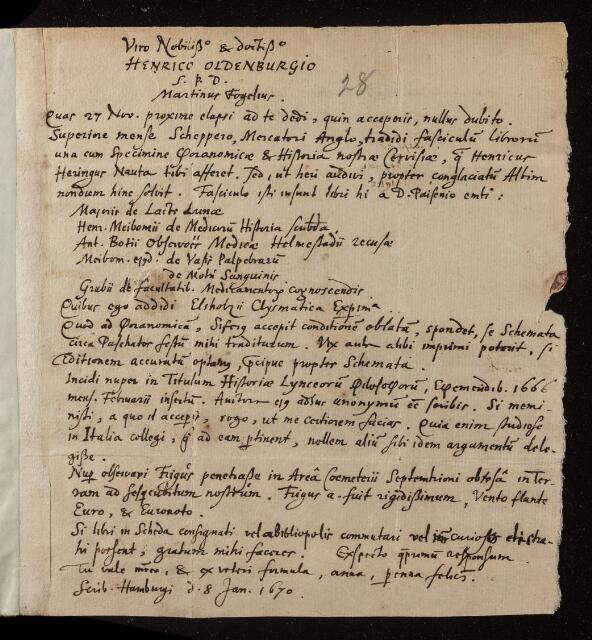 Viro Nobiliss° & doctiss°
HENRICO OLDENBURGIO
S. P. D.
Martinus Fogelius.
28
Quas 27 Nov. proxime elapsi ad te dedi, quin acceperis, nullus dubito.
Superiore mense Scheppero, Mercatori Anglo, tradidi fasciculū librorū
una cum Specimine Phoranomicæ & Historia nostræ Cervisiæ, q̄ Henricus
Heringus Nauta tibi afferet. Sed, ut heri audivi, propter conglaciatū Albim
nondum hinc solvit. Fasciculo isti insunt libri hi a D. Paisenio emti:
Majoris de Lacte Lunæ
Henr. Meibomii de Medicorū Historia scribēda,
Ant. Botii Observōes Medicæ Helmestadii recusæ
Meibom. ejqd. de Vasis Palpebrarū
de Motu Sanguinis
Grubii de facultatib. Medicamentor. cognoscendis
Quibus ego addidi Elsholzii Clysmatica
Quod ad Phoranomicā, Siferg accepit conditionē oblatā, spondet, se Schemata
circa Paschatos festum mihi traditurum. Vix aut alibi imprimi poterit, si
Editionem accuratā optamq, præcipue propter Schemata.
Incidi nuper in Titulum Historiæ Lynceorū Philosophorū, Ephemerid. 1666
mens. Februarii insertū. Autorem ejq adhuc anonymum eē scribis. Si memi-
nisti, a quo id acceperis, rogo, ut me certiorem facias. Quia enim studiose
in Italia collegi, q̄ ad eam pertinent, nollem aliū sibi idem argumentū dele-
gisse.
Nup observavi Frigus penetrasse in Areā Cœmeterii Septentrioni obversā in Ter-
ram ad sesquicubitum nostrum. Frigus a. fuit rigidissimum, Vento flante
Euro, & Euronoto.
Si libri in Scheda consignati vel a bibliopolis commutari vel curiosos distra-
hi possent, gratum mihi faceres. Exspecto q̄primū responsum.
Tu vale & ex veteri formula, annū, perenna felix.
Scrib. Hamburgi d. 8 Jan. 1670.